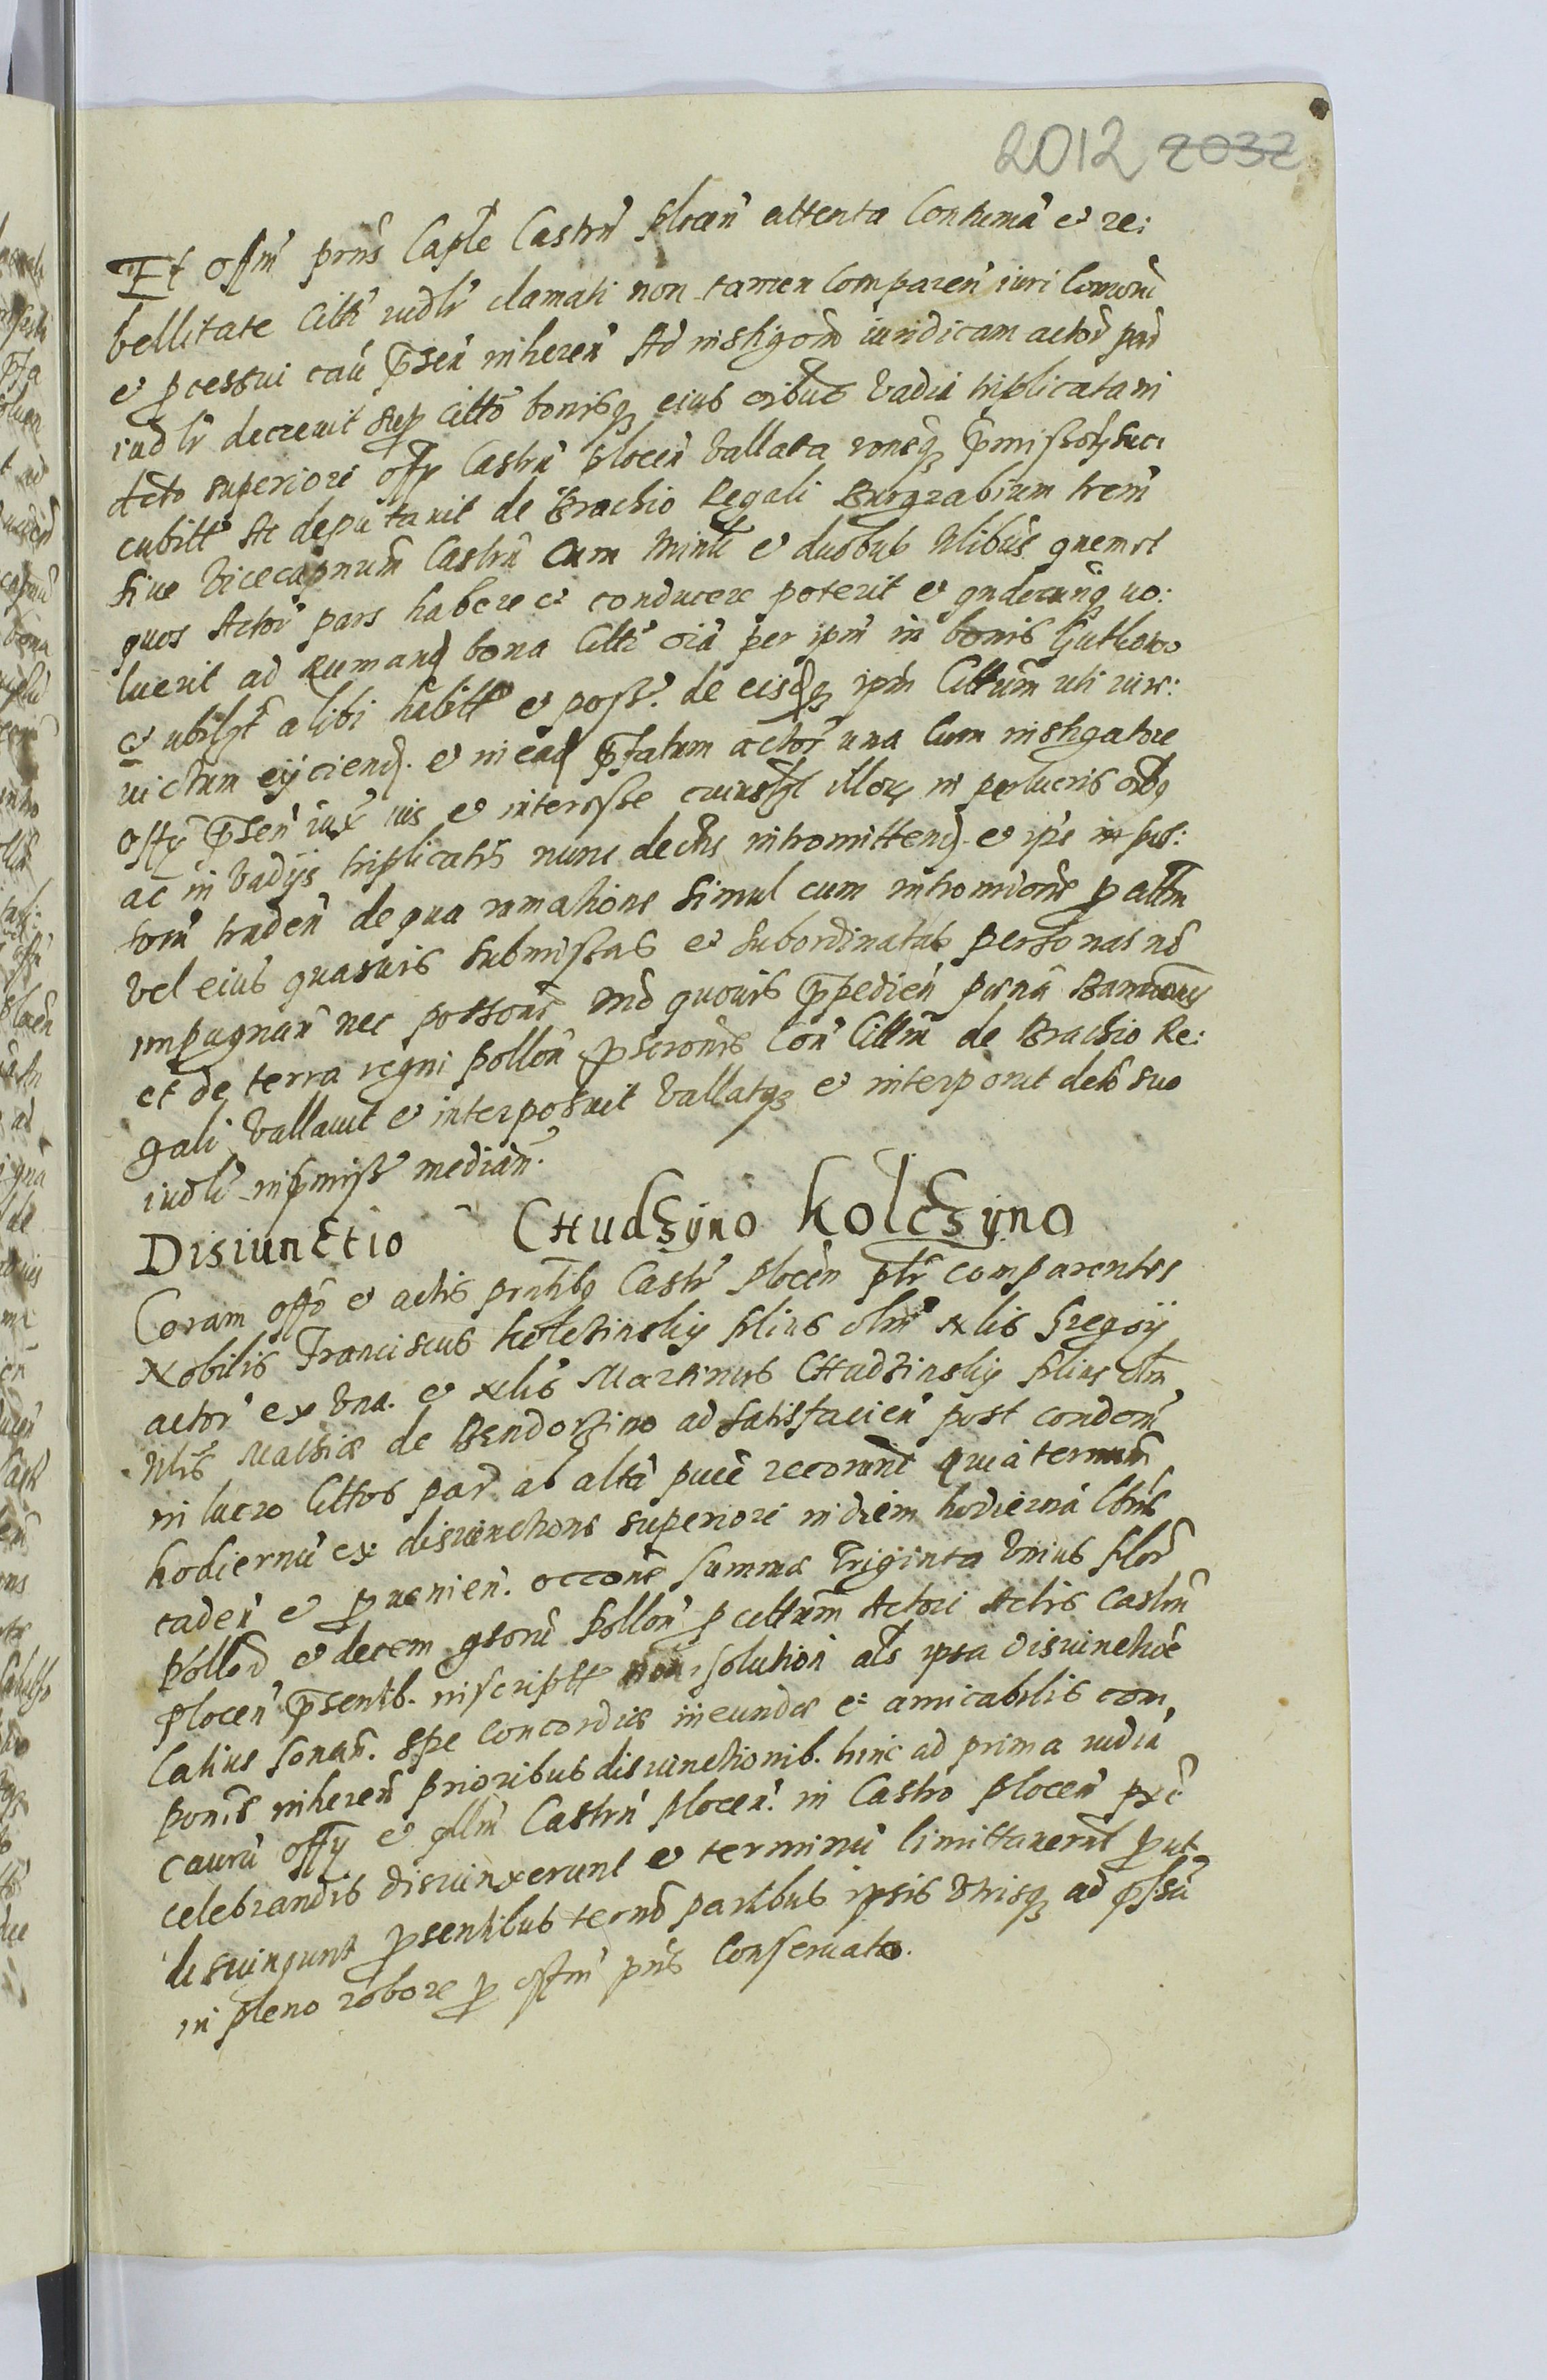 2012 2032
Et offm prns Caple Castrn Plocen attenta Contuma et re:
bellitate Citti iudlr clamati non tamen Comparen iuri Comoni
et pcessui cau psen inheren Ad instigoem iuridicam actor pars
iudlr decreuit sup Citto bonisq eius oibus Vadia triplicata in
dcto superiori offo Castrn Plocen Vallata roneq pmissor suc:
cubitt Ac deputauit de Brachio Regali Burgrabium trem
siue Vicecapnum Castrn Cum Minli et duobus Nlibus quem et
quos Actor pars habere et conducere poterit et undecunq uo:
luerit ad Rumand bona Citti oia per ipm in bonis Gutkowo
et ubilqt alibi habitt et poss. de eisdq ipm Cittum uti iure:
uictum eijciend. et in ead pfatam actor una Cum instigatore
offij psen iux ius et interesse cuiuslqt illor in perlucris oibq
ac in Vadijs triplicatis nunc dectis intromittend. et ipi in pos:
soem traden de qua rumatione simul cum intromione p attm
Vel eius quasuis submissas et subordinatas personas no
impugnan nec possone mo quouis ppedien paena Bannionis
et de terra regni Pollon pscronis Con Cittm de Brachio Re:
gali Vallauit et interposuit Vallatq et interponit dcto suo
iudlr in pmiss median.
Disiunctio CHudzyno Kolczyno
Coram offo et actis prntibq Castr Plocen pltr comparentes
Nobilis Franciscus Kolczinskij filius olim Nlis Gregorij
actor ex Vna. et Nlis Martinus CHudzinskij filius olim
Nlis Mathiae de Bendorzino ad satisfacien post condem
in lucro Cittos par ab alta puce recorunt quia termnum
hodiernu ex disiunctione superiori in diem hodierna Ctnis
caden et pvenien. occone summae Triginta Vnius flor
Pollod et decem grorum Pollon p cittum Actori Actis Castrn
Plocen psentib. inscriptt non solution als ipsa disiunctioe
latius sonan. spe Concordiae ineundae et amicabilis com
ponis inheren prioribus disiunctionib. hinc ad prima iudia
cauru offij et gllm Castrn Plocen. in Castro Plocen pxe
celebrandis disiunxerunt et terminu limittauerunt put
disiungunt psentibus termno partibus ipsis Vtrisq ad pssa
in pleno robore p offm pns Conseruato.